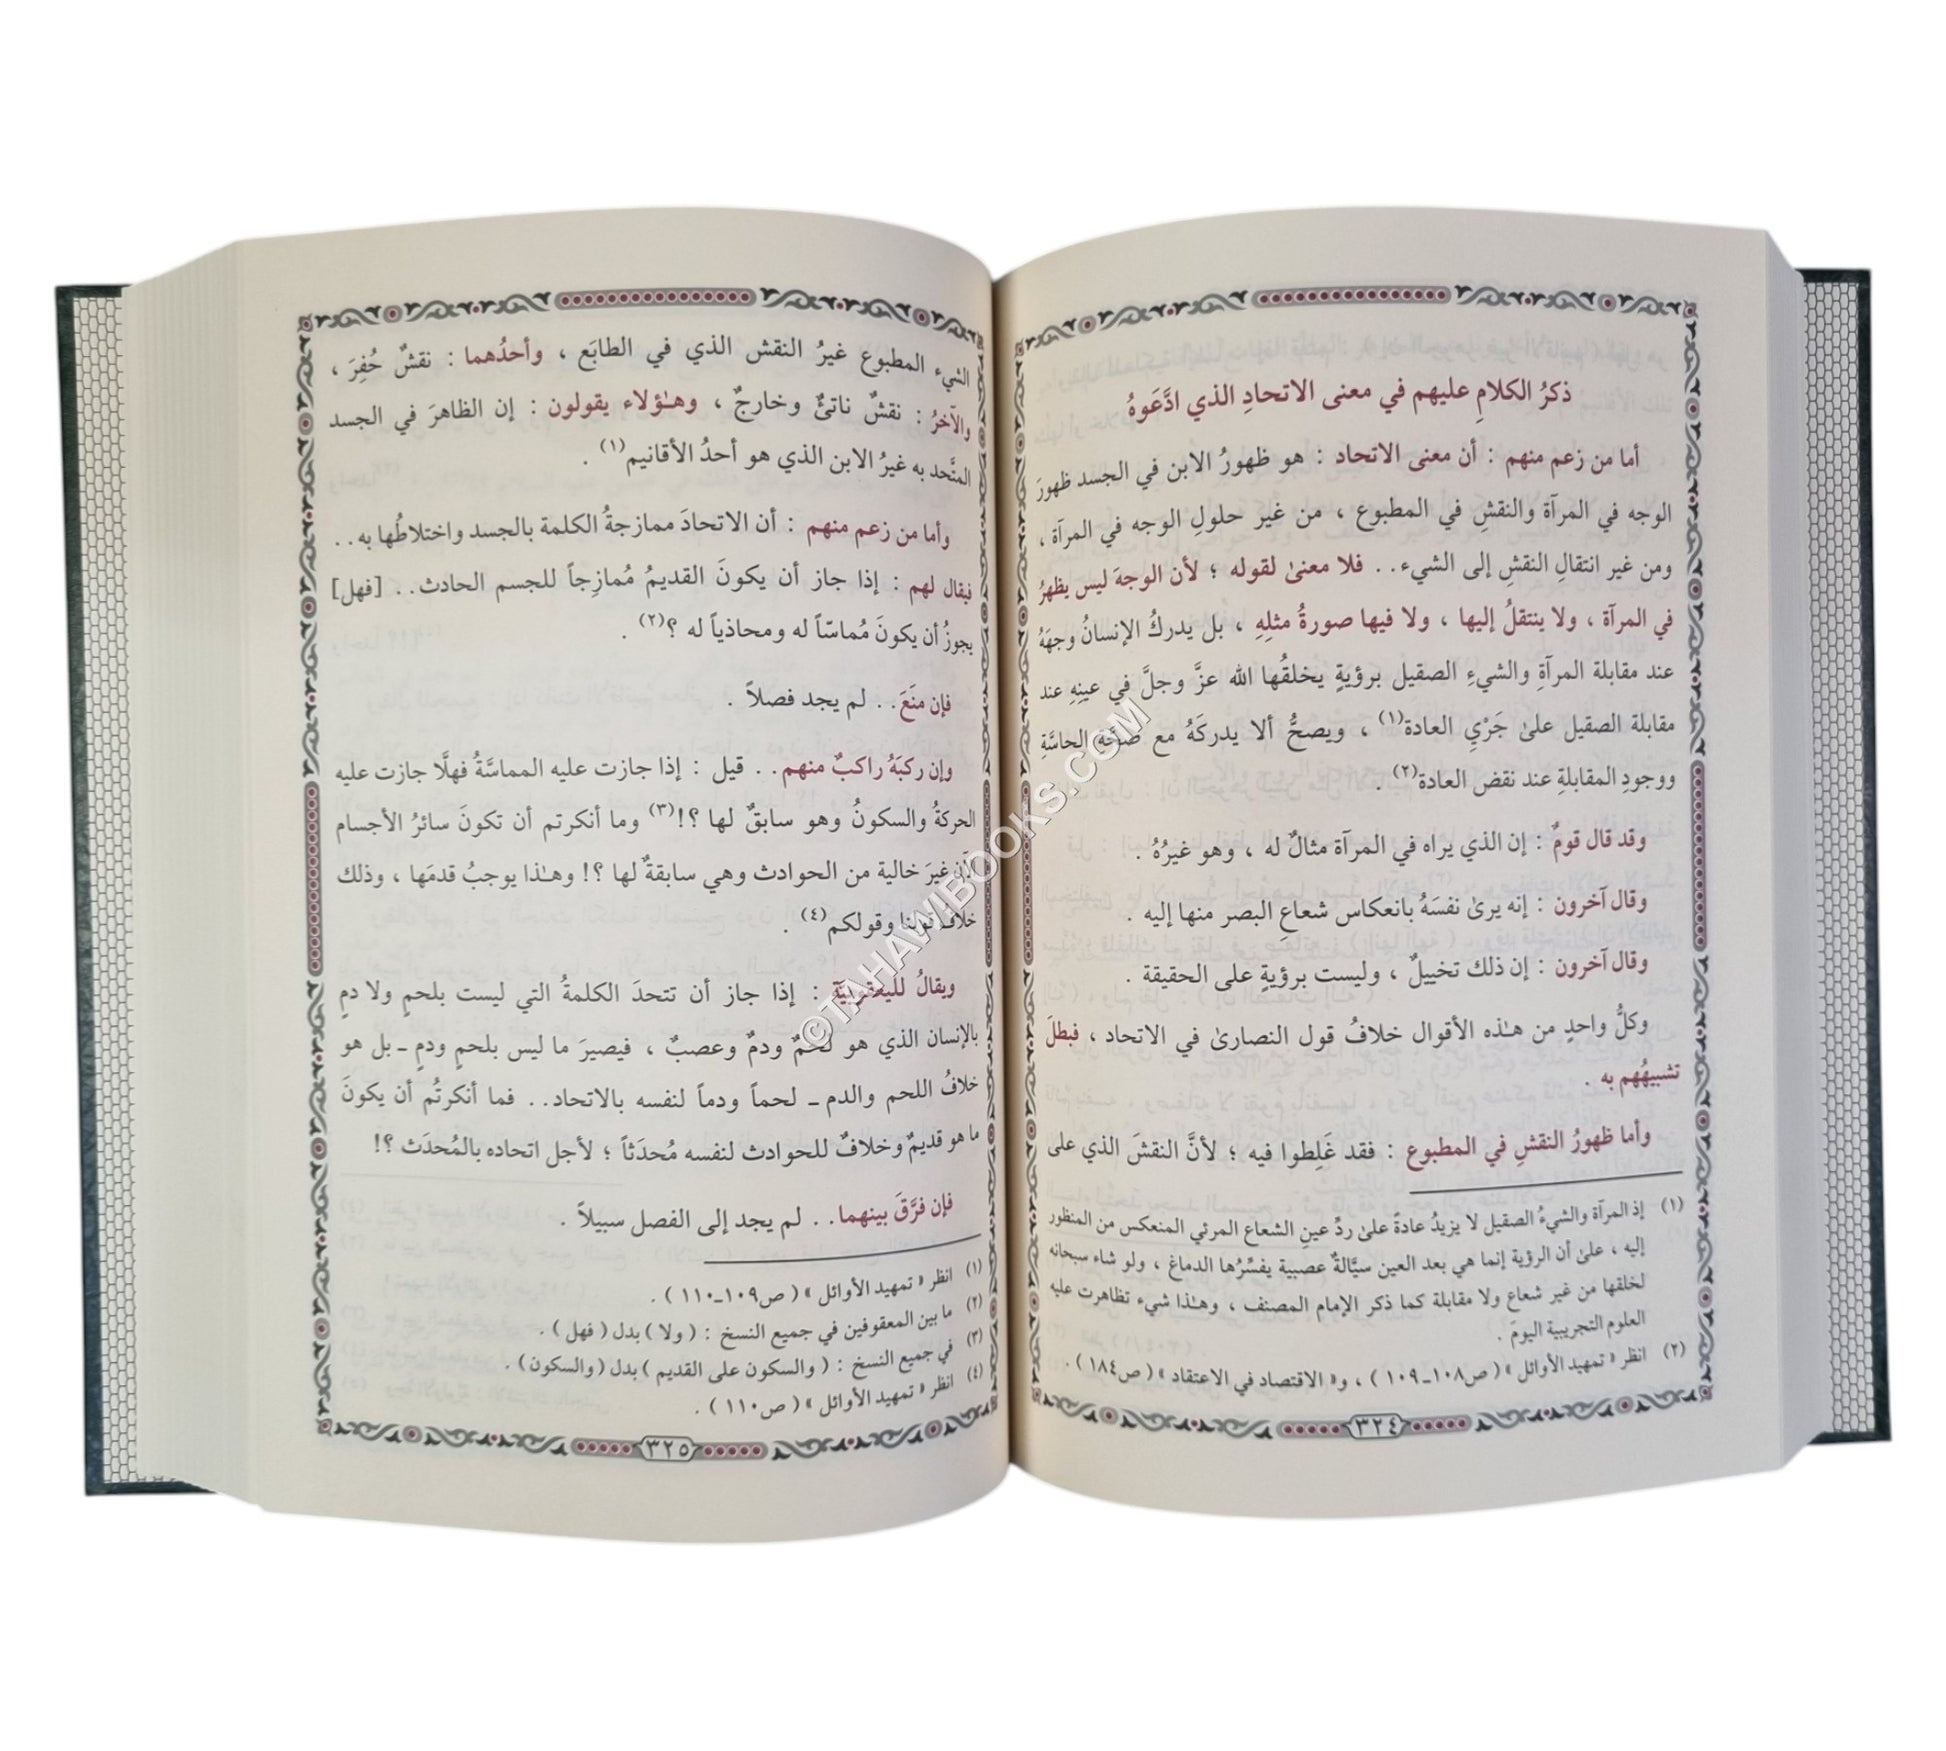 ذكرُ الكلامِ عليهم في معنى الاتحادِ الذي ادَّعَوهُ
أما من زعم منهم : أن معنى الاتحاد : هو ظهورُ الابن في الجسد ظهورَ
الوجه في المرآة والنقشِ في المطبوع ، من غير حلولِ الوجه في المرآة ،
ومن غير انتقالِ النقشِ إلى الشيء . . فلا معنىٰ لقوله ؛ لأن الوجهَ ليس يظهرُ
في المرآة ، ولا ينتقلُ إليها ، ولا فيها صورةُ مثلِهِ ، بل يدركُ الإنسانُ وجهَهُ
عند مقابلة المرآةِ والشيءِ الصقيل برؤيةٍ يخلقُها الله عزَّ وجلَّ في عينِهِ عند
مقابلة الصقيل علىٰ جَرْيِ العادة(١) ، ويصحُّ ألا يدركَهُ مع صحَّة الحاسَّةِ
ووجودِ المقابلةِ عند نقض العادة(٢) .
وقد قال قومٌ : إن الذي يراه في المرآة مثالٌ له ، وهو غيرُهُ .
وقال آخرون : إنه يرىٰ نفسَهُ بانعكاس شعاعِ البصر منها إليه .
وقال آخرون : إن ذلك تخييلٌ ، وليست برؤيةٍ على الحقيقة .
وكلُّ واحدٍ من هـٰذه الأقوال خلافُ قول النصارىٰ في الاتحاد ، فبطلَ
تشبيهُهم به .
وأما ظهورُ النقشِ في المطبوع : فقد غَلِطوا فيه ؛ لأنَّ النقشَ الذي على
(١) إذ المرآة والشيءُ الصقيل لا يزيدُ عادةً علىٰ ردِّ عينِ الشعاع المرئي المنعكس من المنظور
إليه ، علىٰ أن الرؤية إنما هي بعد العين سيَّالةٌ عصبية يفسِّرُها الدماغ ، ولو شاء سبحانه
لخلقها من غير شعاع ولا مقابلة كما ذكر الإمام المصنف ، وهـٰذا شيء تظاهرت عليه
العلوم التجريبية اليومَ .
(٢) انظر « تمهيد الأوائل » ( ص١٠٨ـ١٠٩ ) ، و« الاقتصاد في الاعتقاد » ( ص١٨٤ ) .
٣٢٤
الشيء المطبوع غيرُ النقش الذي في الطابَع ، وأحدُهما : نقشٌ حُفِرَ ،
والآخرُ : نقشٌ ناتئٌ وخارجٌ ، وهـٰؤلاء يقولون : إن الظاهرَ في الجسد
المتَّحد به غيرُ الابن الذي هو أحدُ الأقانيم(١) .
وأما من زعم منهم : أن الاتحادَ ممازجةُ الكلمة بالجسد واختلاطُها به . .
فيقال لهم : إذا جاز أن يكونَ القديمُ مُمازِجاً للجسم الحادث . . [فهل]
يجوزُ أن يكونَ مُماسّاً له ومحاذياً له ؟(٢) .
فإن منَعَ . . لم يجد فصلاً .
وإن ركبَهُ راكبٌ منهم . . قيل : إذا جازت عليه المماسَّةُ فهلَّا جازت عليه
الحركةُ والسكونُ وهو سابقٌ لها ؟!(٣) وما أنكرتم أن تكونَ سائرُ الأجسام
الآن غيرَ خالية من الحوادث وهي سابقةٌ لها ؟! وهـٰذا يوجبُ قدمَها ، وذلك
خلافُ قولنا وقولكم(٤) .
ويقالُ لليعقوبيَّةِ : إذا جاز أن تتحدَ الكلمةُ التي ليست بلحمٍ ولا دمٍ
بالإنسان الذي هو لحمٌ ودمٌ وعصبٌ ، فيصيرَ ما ليس بلحمٍ ودمٍ ـ بل هو
خلافُ اللحم والدم ـ لحماً ودماً لنفسه بالاتحاد . . فما أنكرتُم أن يكونَ
ما هو قديمٌ وخلافٌ للحوادث لنفسه مُحدَثاً ؛ لأجل اتحاده بالمُحدَث ؟!
فإن فرَّقَ بينهما . . لم يجد إلى الفصل سبيلاً .
(١) انظر « تمهيد الأوائل » ( ص١٠٩ـ١١٠ ) .
(٢) ما بين المعقوفين في جميع النسخ : ( ولا ) بدل ( فهل ) .
(٣) في جميع النسخ : ( والسكون على القديم ) بدل ( والسكون ) .
(٤) انظر « تمهيد الأوائل » ( ص١١٠ ) .
٣٢٥
©TAHAWIBOOKS.COM